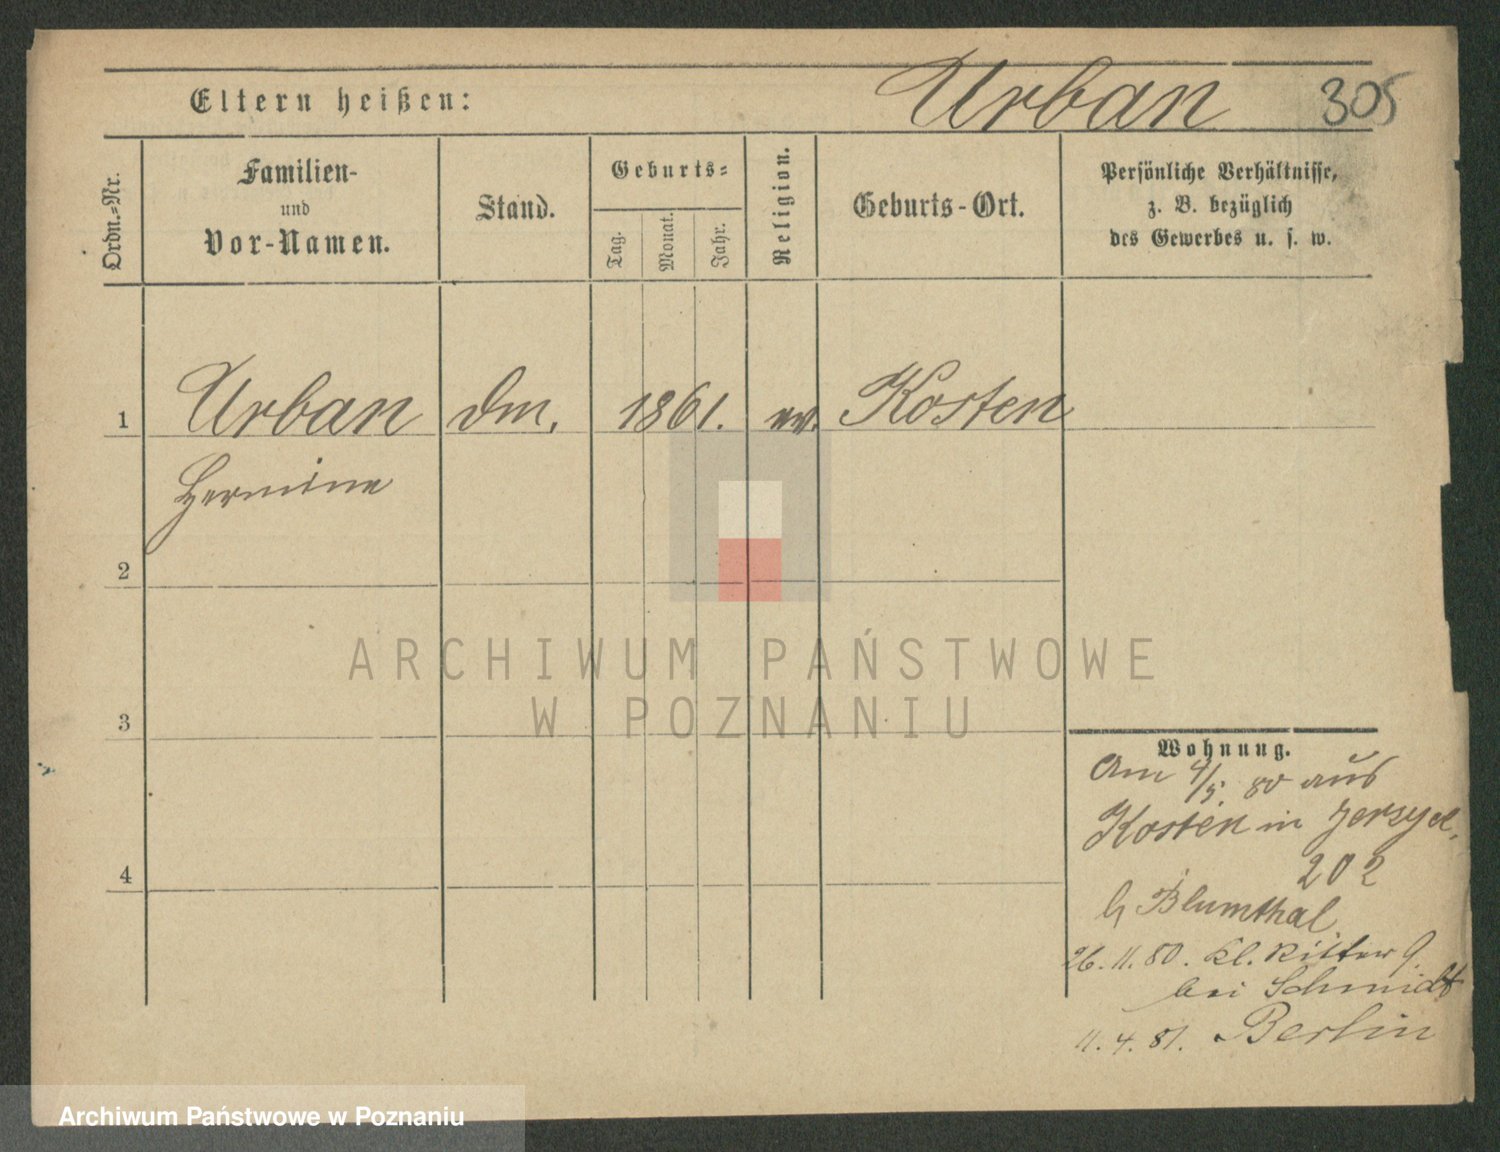 Urban 305
Eltern heißen:
Ordn.=Nr.
Familien-
und
Vor-Namen.
Stand.
Geburts=
Tag.
Monat.
Jahr.
Religion.
Geburts-Ort.
Persönliche Verhältnisse,
z. B. bezüglich
des Gewerbes u. s. w.
1 Urban Dm. 1861. ev. Kosten
Hermine
2
3
4
Wohnung.
Am 4/5. 80 aus
Kosten in Jerzyce,
202
b. Blumthal
26.11.80. Kl. Ritter 9
bei Schmidt
11.4.81. Berlin
ARCHIWUM PAŃSTWOWE
W POZNANIU
Archiwum Państwowe w Poznaniu